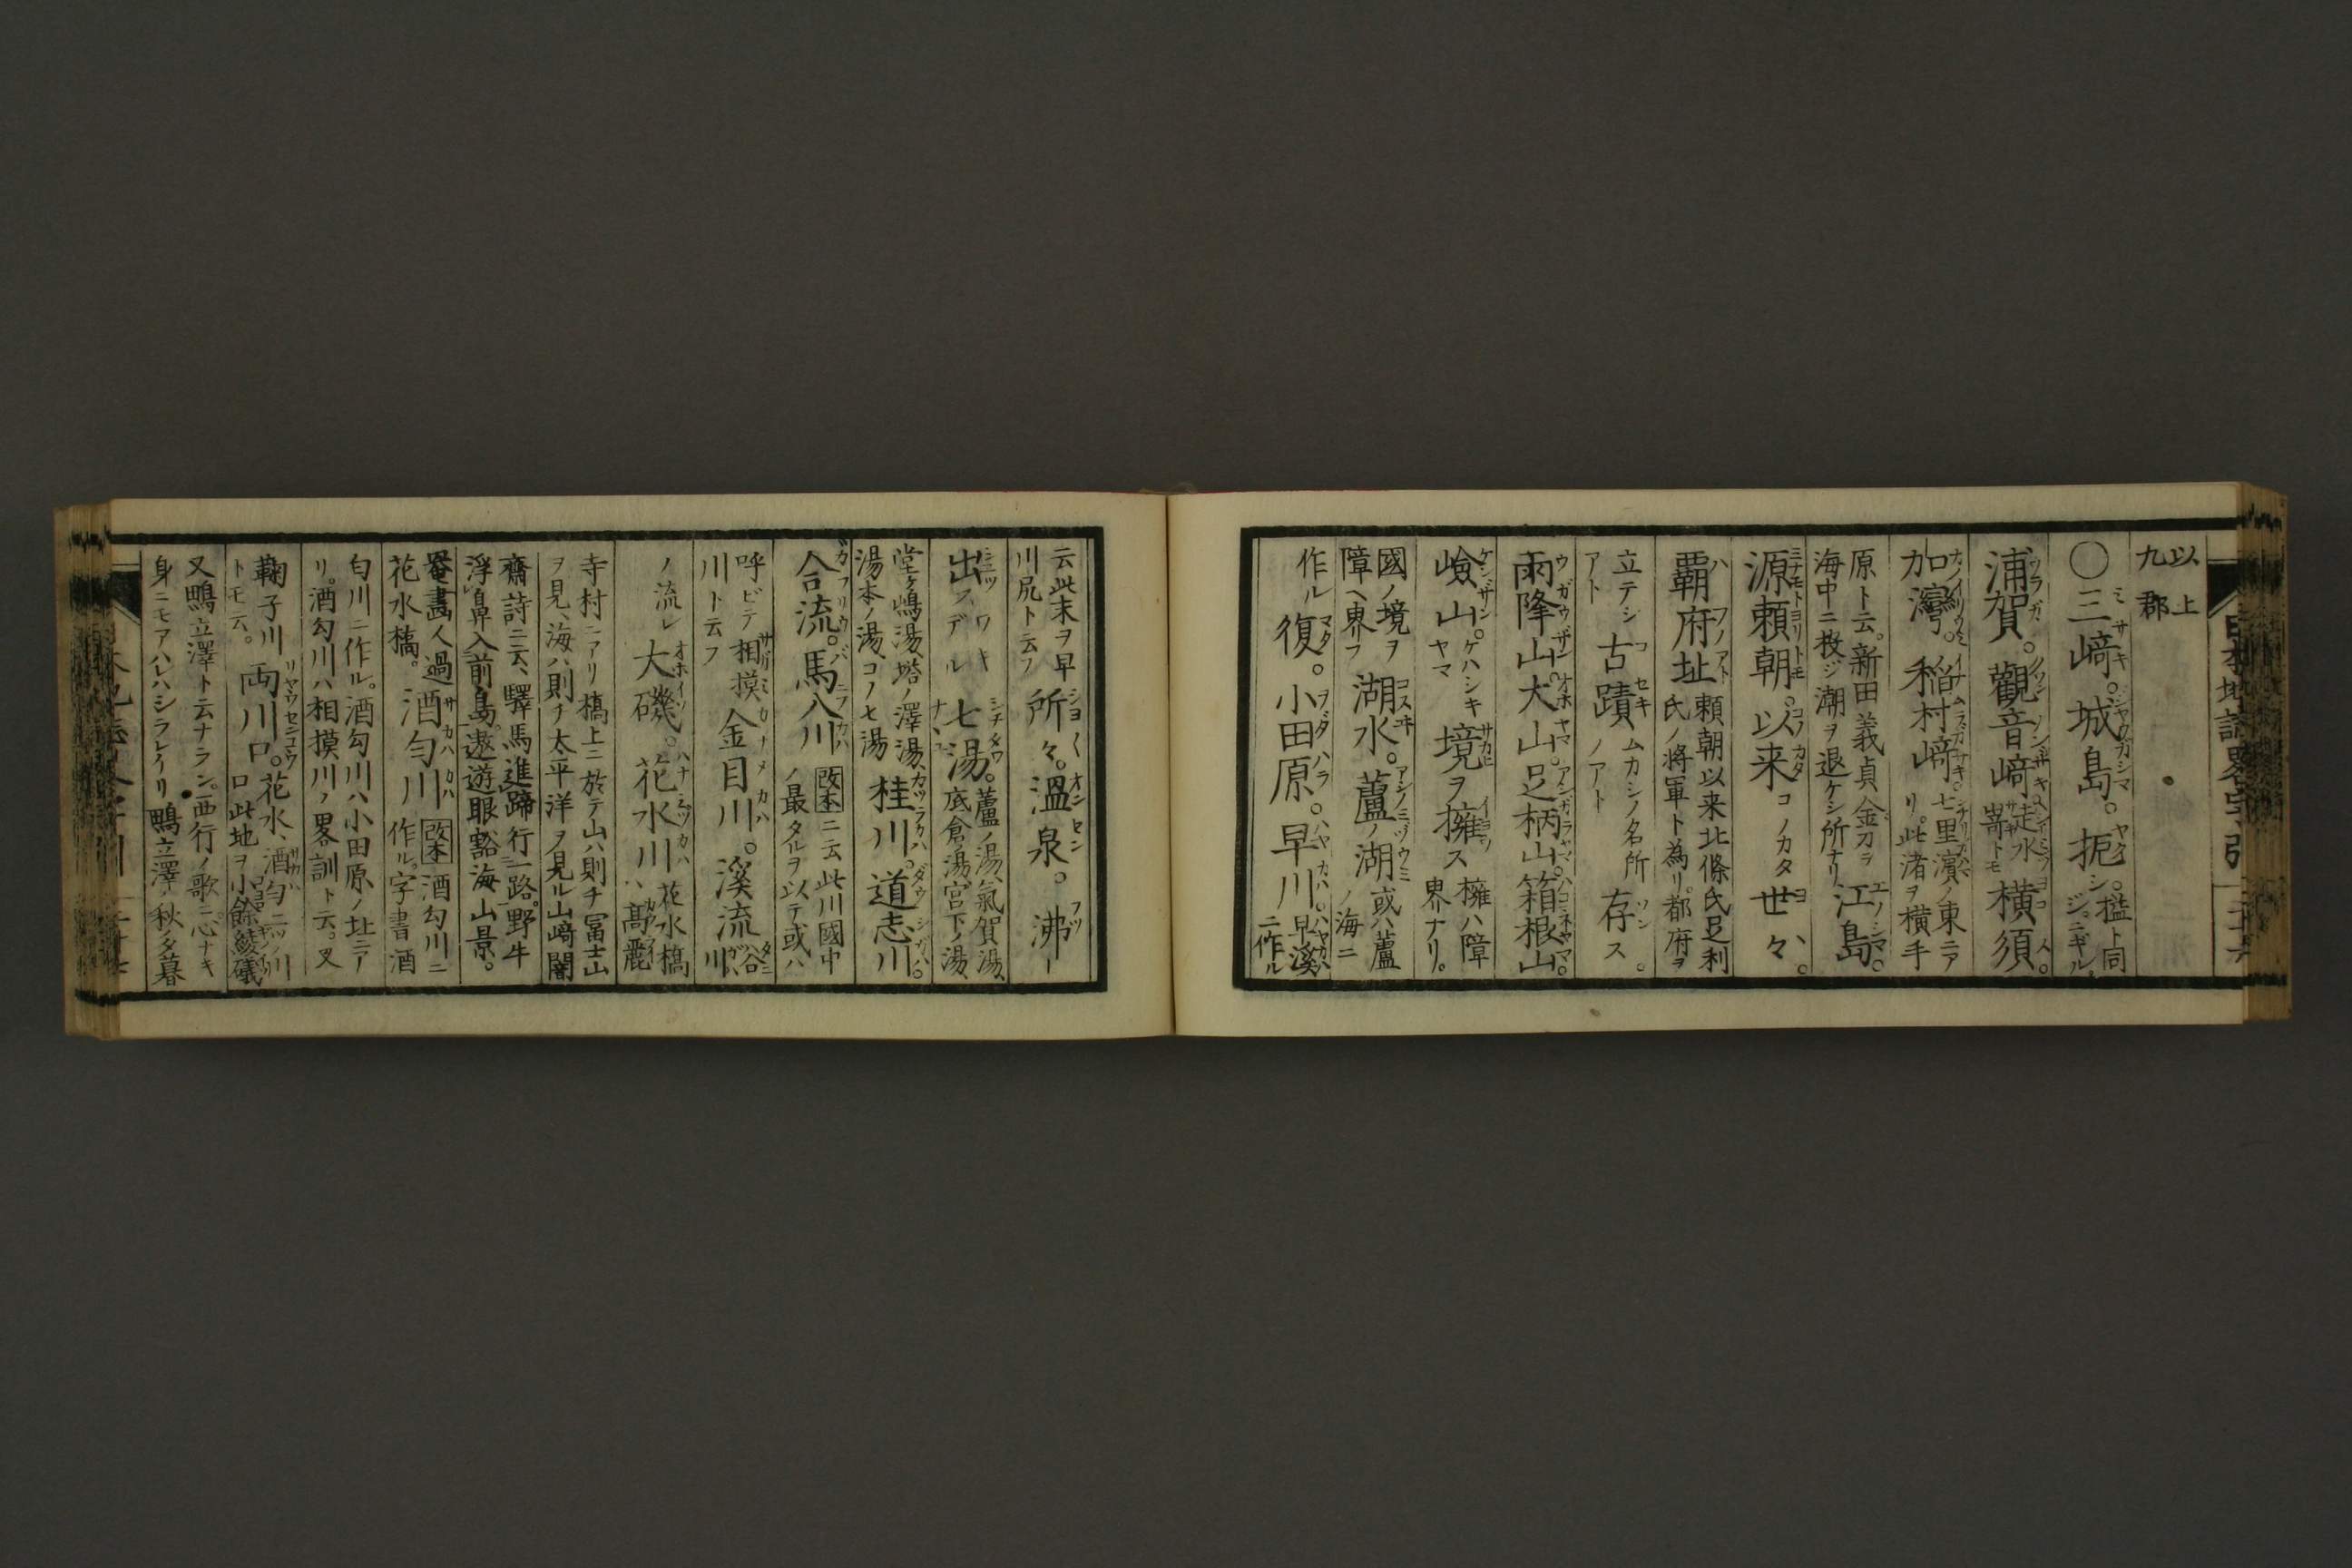 以上
九郡
〇三﨑。城島。扼シ。搤ト同ジ。ニギル。
浦賀。觀音﨑走水嵜トモ横須
加灣。稻村﨑七里濵ノ東ニアリ。此渚ヲ横手
原ト云。新田義貞金刀ヲ海中ニ投ジ潮ヲ退ケシ所ナリ江島。
源頼朝。以来コノカタ世々。
覇府址頼朝以来北條氏足利氏ノ將軍ト為リ。都府ヲ
立テシアト古蹟ムカシノ名所ノアト存ス。
雨降山大山。足柄山。箱根山。
嶮山。ケハシキヤマ境ヲ擁ス擁ハ障界ナリ。
國ノ境ヲ障ヘ界フ湖水。蘆ノ湖或ハ蘆ノ海ニ
作ル復。小田原。早川。早溪ニ作ル
云此末ヲ早川尻ト云フ所々。温泉。沸ー
出。フデル七湯。蘆ノ湯、氣賀湯、底倉湯、宮下ノ湯、
堂ヶ嶋湯、塔ノ澤湯、湯本ノ湯、コノ七湯桂川。道志川。
合流。馬入川改本ニ云此川國中ノ最タルヲ以テ或ハ
呼ビテ相摸川ト云フ金目川。溪流谷川
ノ流レ大磯。花水川花水橋ハ、髙麗
寺村ニアリ橋上ニ於テ山ハ則チ冨士山ヲ見、海ハ則チ太平洋ヲ見ル山﨑闇
齋詩ニ云、驛馬進蹄行一路。野牛浮鼻入前島。遨遊眼豁海山景。
罨畫人過花水橋。酒匂川改本酒勾川ニ作ル。字書酒
匂川ニ作ル。酒勾川ハ小田原ノ址ニアリ。酒勾川ハ相摸川ノ畧訓ト云。又
鞠子川トモ云。両川口。花水、酒匂二ツノ川口此地ヲ小餘綾礒
又鴫立澤ト云ナラン。西行ノ歌ニ心ナキ身ニモアハレハシラレケリ鴫立澤ノ秋ノ夕暮